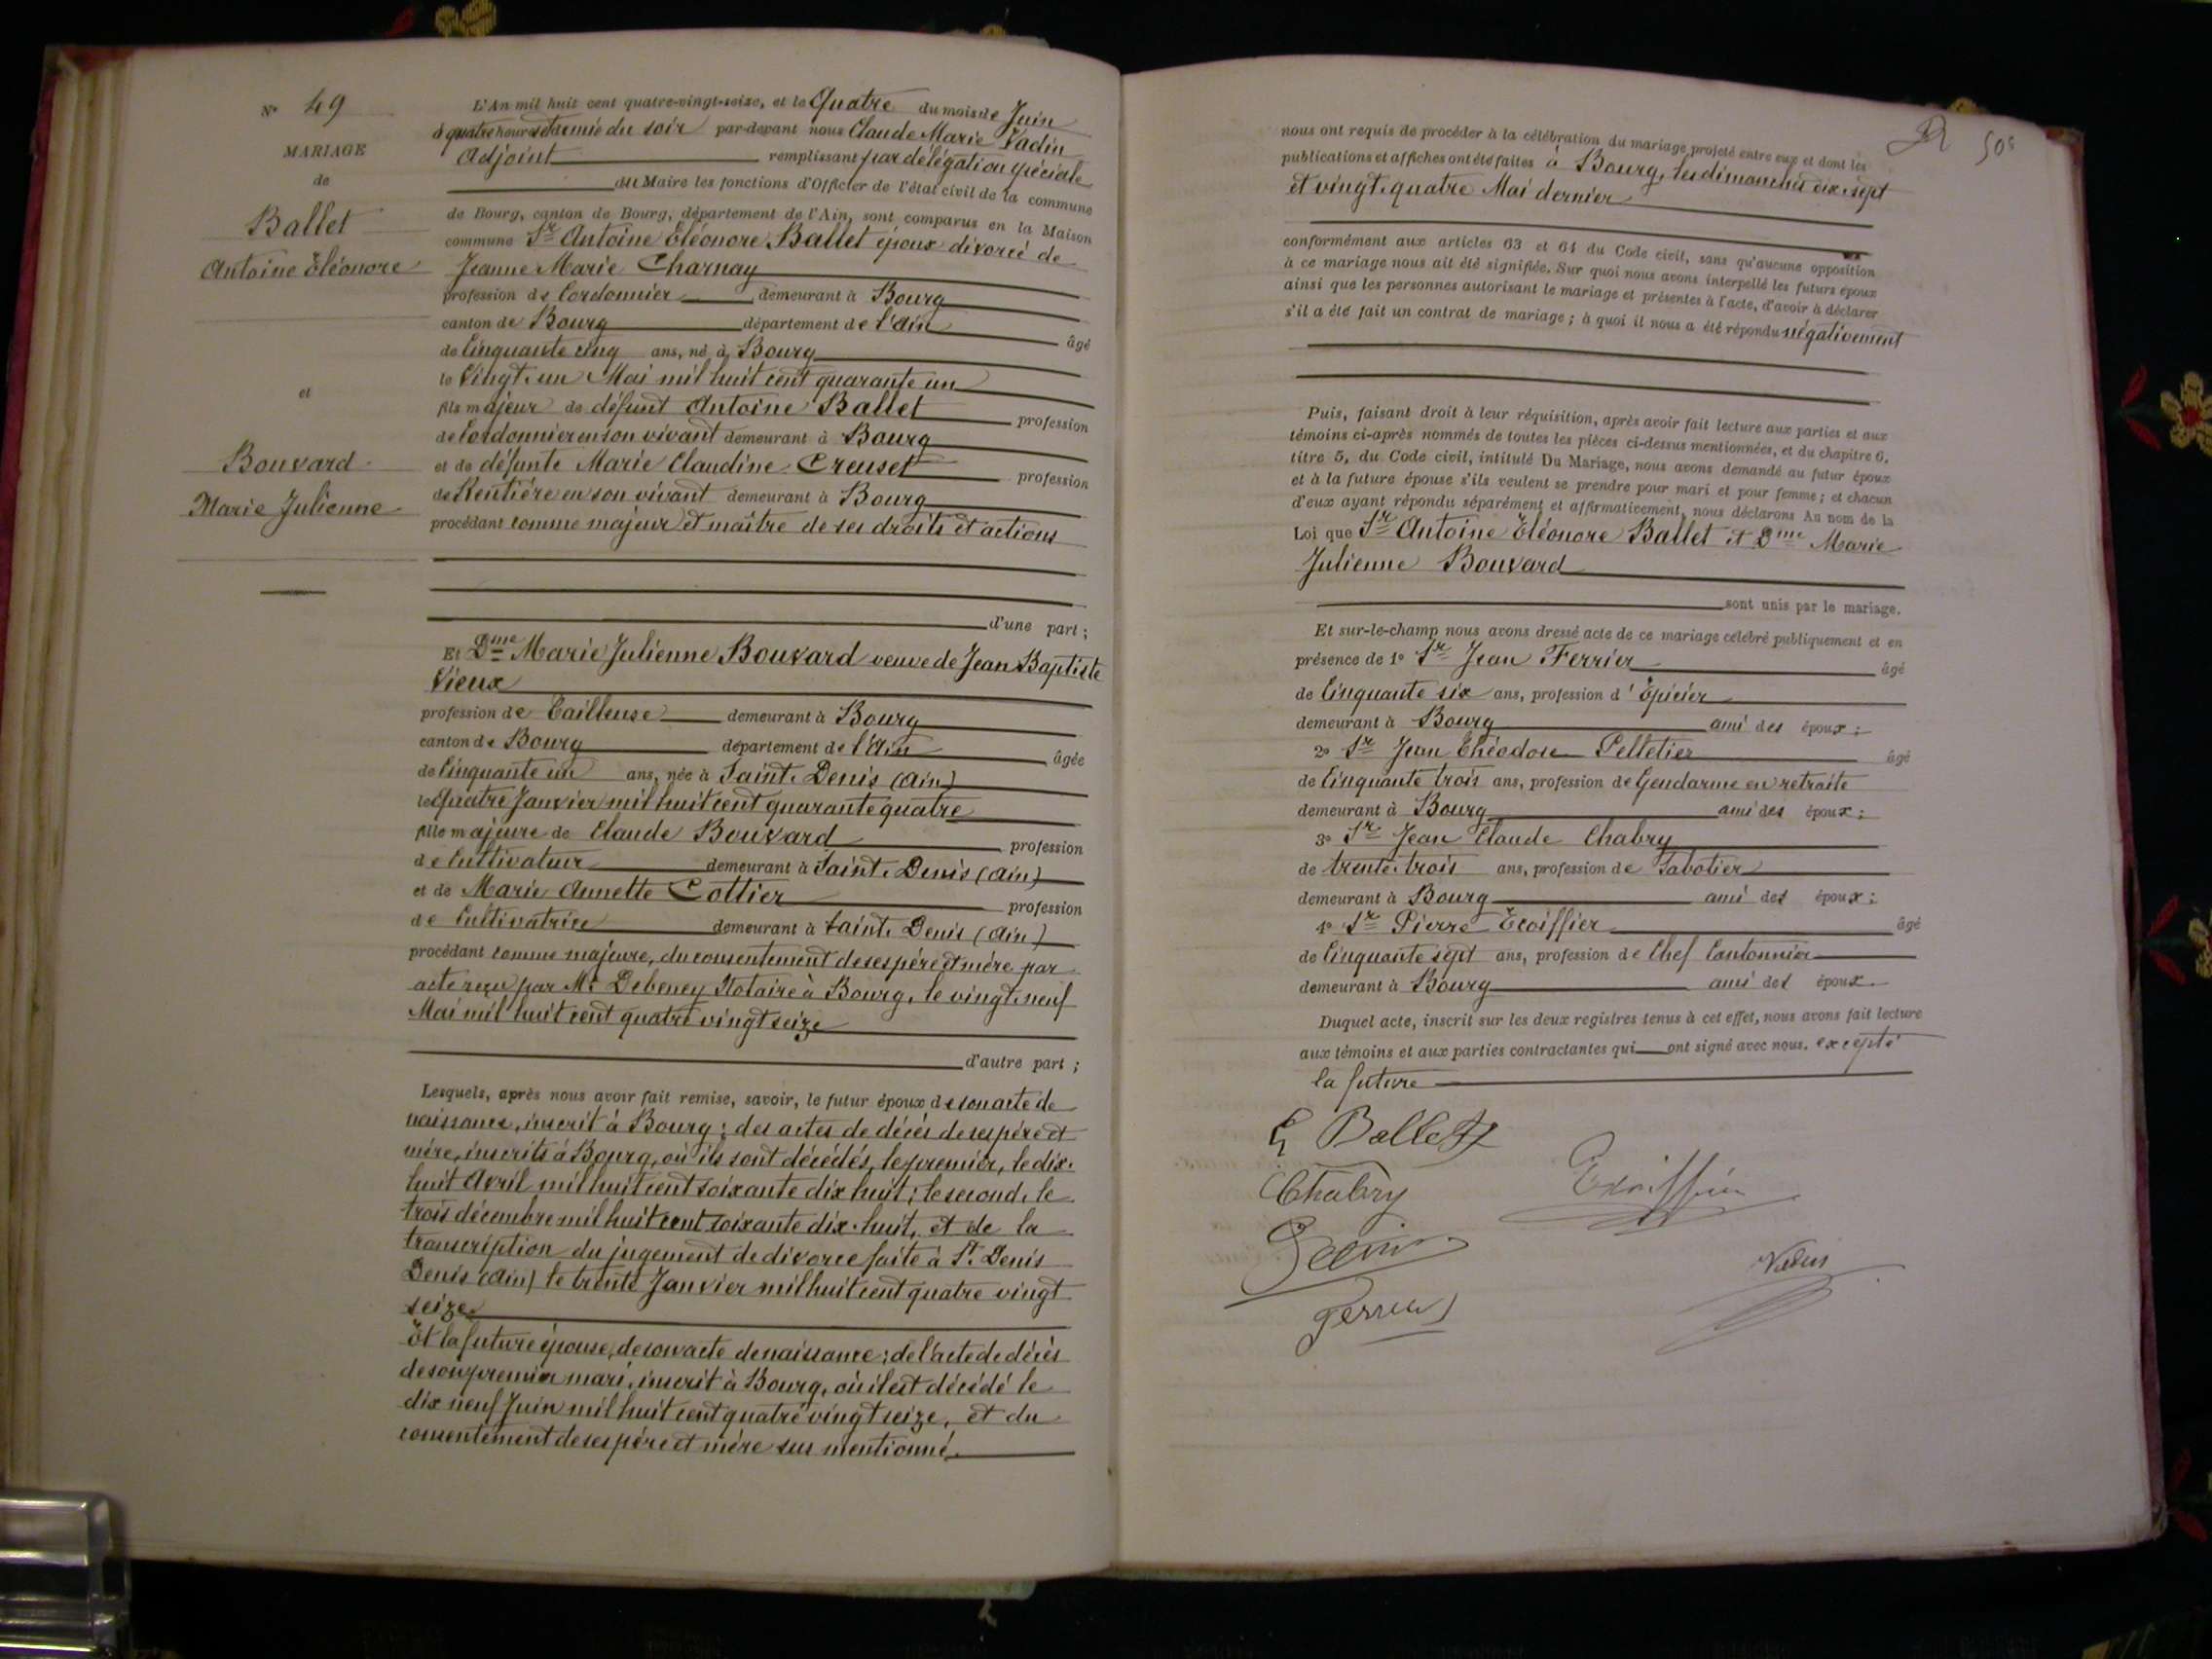 N° 49
MARIAGE
de
Ballet
Antoine Éléonore
et
Bouvard
Marie Julienne
L'An mil huit cent quatre-vingt-seize, et le Quatre du mois de Juin
à quatre heures et demie du soir par-devant nous Claude Marie Vadin
Adjoint remplissant par délégation spéciale
du Maire les fonctions d'Officier de l'état civil de la commune
de Bourg, canton de Bourg, département de l'Ain, sont comparus en la Maison
commune Sr Antoine Éléonore Ballet époux divorcé de
Jeanne Marie Charnay
profession de Cordonnier demeurant à Bourg
canton de Bourg département de l'Ain âgé
de Cinquante cinq ans, né à Bourg
le Vingt un Mai mil huit cent quarante un
fils majeur de défunt Antoine Ballet profession
de Cordonnier en son vivant demeurant à Bourg
et de défunte Marie Claudine Creuset profession
de Rentière en son vivant demeurant à Bourg
procédant comme majeur et maître de ses droits et actions
d'une part ;
Et Dme Marie Julienne Bouvard veuve de Jean Baptiste
Vieux
profession de Tailleuse demeurant à Bourg
canton de Bourg département de l'Ain âgée
de Cinquante un ans, née à Saint-Denis (Ain)
le Quatre Janvier mil huit cent quarante quatre
fille majeure de Claude Bouvard profession
de Cultivateur demeurant à Saint-Denis (Ain)
et de Marie Annette Cottier profession
de Cultivatrice demeurant à Saint-Denis (Ain)
procédant comme majeure, du consentement de ses père et mère par
acte reçu par Me Debeney Notaire à Bourg, le vingt-neuf
Mai mil huit cent quatre vingt seize
d'autre part ;
Lesquels, après nous avoir fait remise, savoir, le futur époux de son acte de
naissance, inscrit à Bourg ; des actes de décès de ses père et
mère, inscrits à Bourg, où ils sont décédés, le premier, le dix-
huit Avril mil huit cent soixante dix huit ; le second, le
trois décembre mil huit cent soixante dix-huit, et de la
transcription du jugement de divorce faite à St Denis
Denis (Ain) le trente Janvier mil huit cent quatre vingt
seize
Et la future épouse, de son acte de naissance ; de l'acte de décès
de son premier mari, inscrit à Bourg, où il est décédé le
dix neuf Juin mil huit cent quatre vingt seize, et du
consentement de ses père et mère sus mentionné.
505
nous ont requis de procéder à la célébration du mariage projeté entre eux et dont les
publications et affiches ont été faites à Bourg, les dimanches dix-sept
et vingt-quatre Mai dernier
conformément aux articles 63 et 64 du Code civil, sans qu'aucune opposition
à ce mariage nous ait été signifiée. Sur quoi nous avons interpellé les futurs époux
ainsi que les personnes autorisant le mariage et présentes à l'acte, d'avoir à déclarer
s'il a été fait un contrat de mariage ; à quoi il nous a été répondu négativement
Puis, faisant droit à leur réquisition, après avoir fait lecture aux parties et aux
témoins ci-après nommés de toutes les pièces ci-dessus mentionnées, et du chapitre 6,
titre 5, du Code civil, intitulé Du Mariage, nous avons demandé au futur époux
et à la future épouse s'ils veulent se prendre pour mari et pour femme ; et chacun
d'eux ayant répondu séparément et affirmativement, nous déclarons Au nom de la
Loi que Sr Antoine Éléonore Ballet et Dme Marie
Julienne Bouvard
sont unis par le mariage.
Et sur-le-champ nous avons dressé acte de ce mariage célébré publiquement et en
présence de 1° Sr Jean Ferrier âgé
de Cinquante six ans, profession d'Épicier
demeurant à Bourg ami des époux ;
2° Sr Jean Théodore Pelletier âgé
de Cinquante trois ans, profession de Gendarme en retraite
demeurant à Bourg ami des époux ;
3° Sr Jean Claude Chabry
de trente-trois ans, profession de Sabotier
demeurant à Bourg ami des époux ;
4° Sr Pierre Ecoiffier âgé
de Cinquante sept ans, profession de Chef Cantonnier
demeurant à Bourg ami des époux.
Duquel acte, inscrit sur les deux registres tenus à cet effet, nous avons fait lecture
aux témoins et aux parties contractantes qui ont signé avec nous. excepté
la future
Ballet
Chabry
Ecoiffier
Vadin
Ferrier